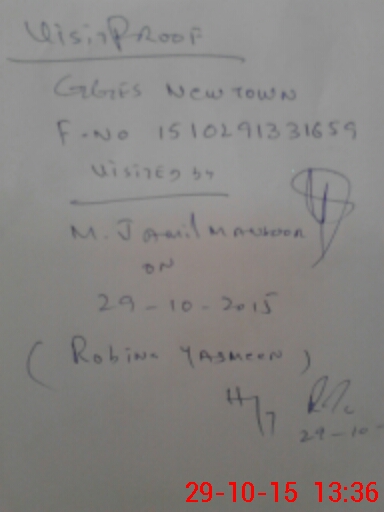 Visit Proof
GGES New Town
F-No 1510291331659
Visited by
M. Jamil Mansoor
on
29-10-2015
(Robina Yasmeen)
29-10-
29-10-15 13:36